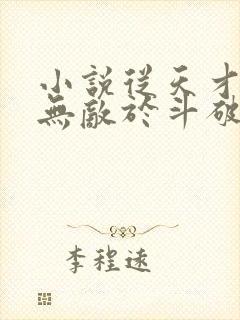 小說從天才
無敵於斗破
李程遠